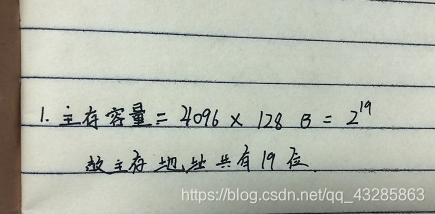 1. 主存容量 = 4096 × 128 B = 2^19
故主存地址共有19位
https://blog.csdn.net/qq_43285863